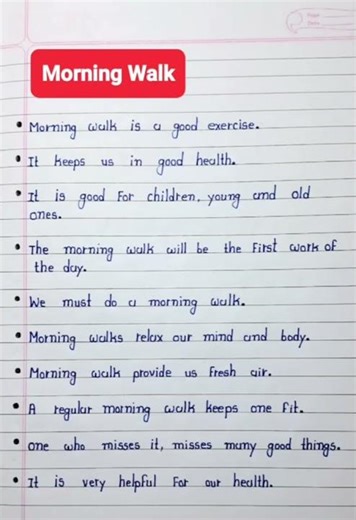 Morning Walk
• Morning walk is a good exercise.
• It keeps us in good health.
• It is good For children, young and old
ones.
• The morning walk will be the First work of
the day.
• We must do a morning walk.
• Morning walks relax our mind and body.
• Morning walk provide us Fresh air.
• A regular morning walk keeps one Fit.
• one who misses it, misses many good things.
• It is very helpful For our health.